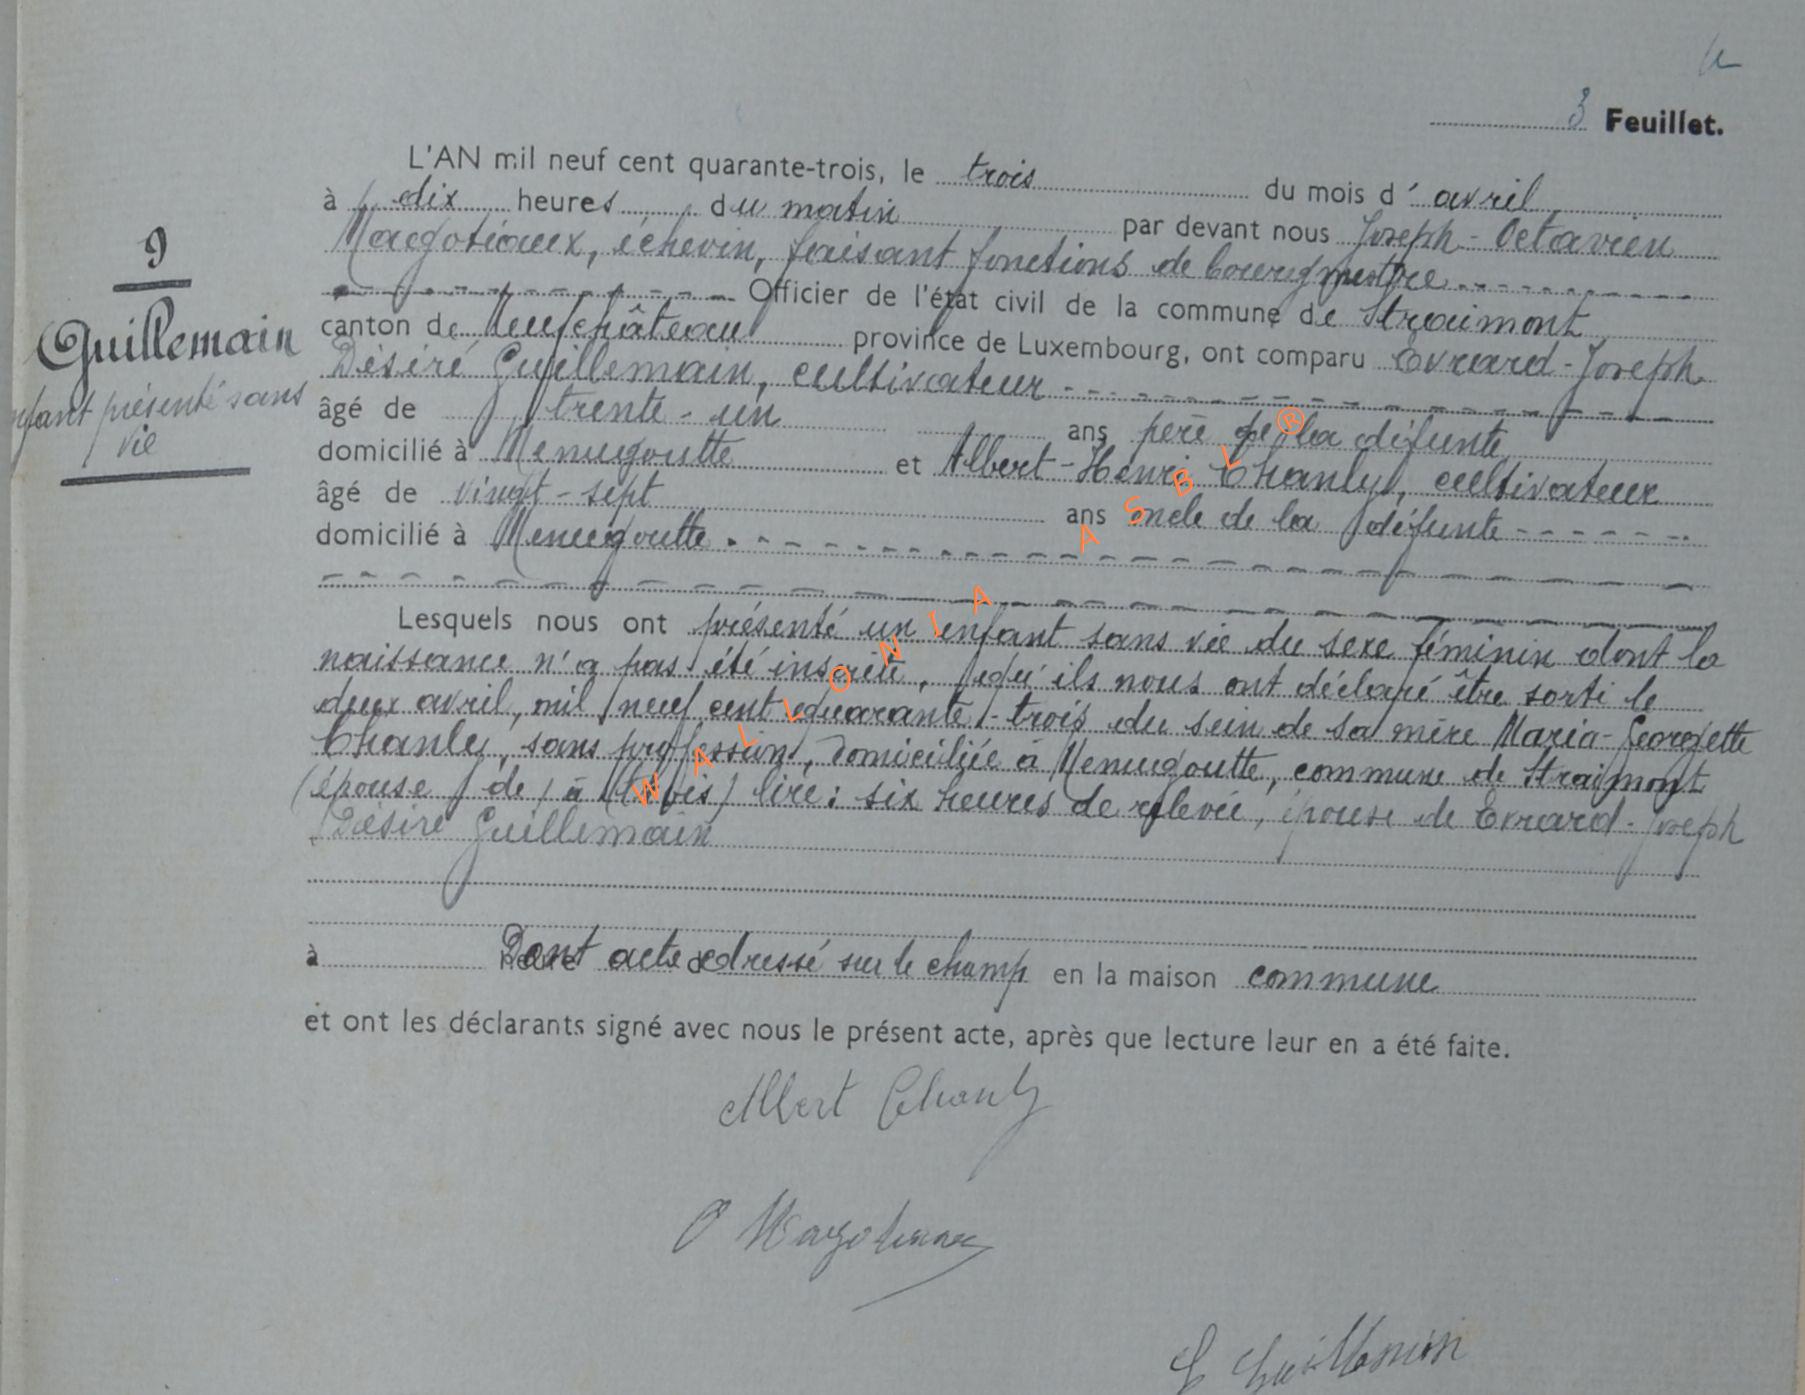 3 Feuillet.
L'AN mil neuf cent quarante-trois, le trois du mois d' avril
à dix heures du matin par devant nous Joseph-Octavien
Margotiaux, échevin, faisant fonctions de bourgmestre
Officier de l'état civil de la commune de Straimont
canton de Neufchâteau province de Luxembourg, ont comparu Evrard-Joseph
Désiré Guillemain, cultivateur
âgé de trente-un ans père de la défunte
domicilié à Menugoutte et Albert-Henri Chanly, cultivateur
âgé de vingt-sept ans oncle de la défunte
domicilié à Menugoutte
Lesquels nous ont présenté un enfant sans vie du sexe féminin dont la
naissance n'a pas été inscrite, qu'ils nous ont déclaré être sorti le
deux avril, mil neuf cent quarante-trois du sein de sa mère Maria-Georgette
Chanly, sans profession, domiciliée à Menugoutte, commune de Straimont
(épouse de) à (trois) lire: six heures de relevée, épouse de Evrard-Joseph
Désiré Guillemain
à heure d Dont acte dressé sur le champ en la maison commune
et ont les déclarants signé avec nous le présent acte, après que lecture leur en a été faite.
Albert Chanly
O Margotiaux
E Guillemain
9
Guillemain
enfant présenté sans
vie
WALLONIA ASBL ®